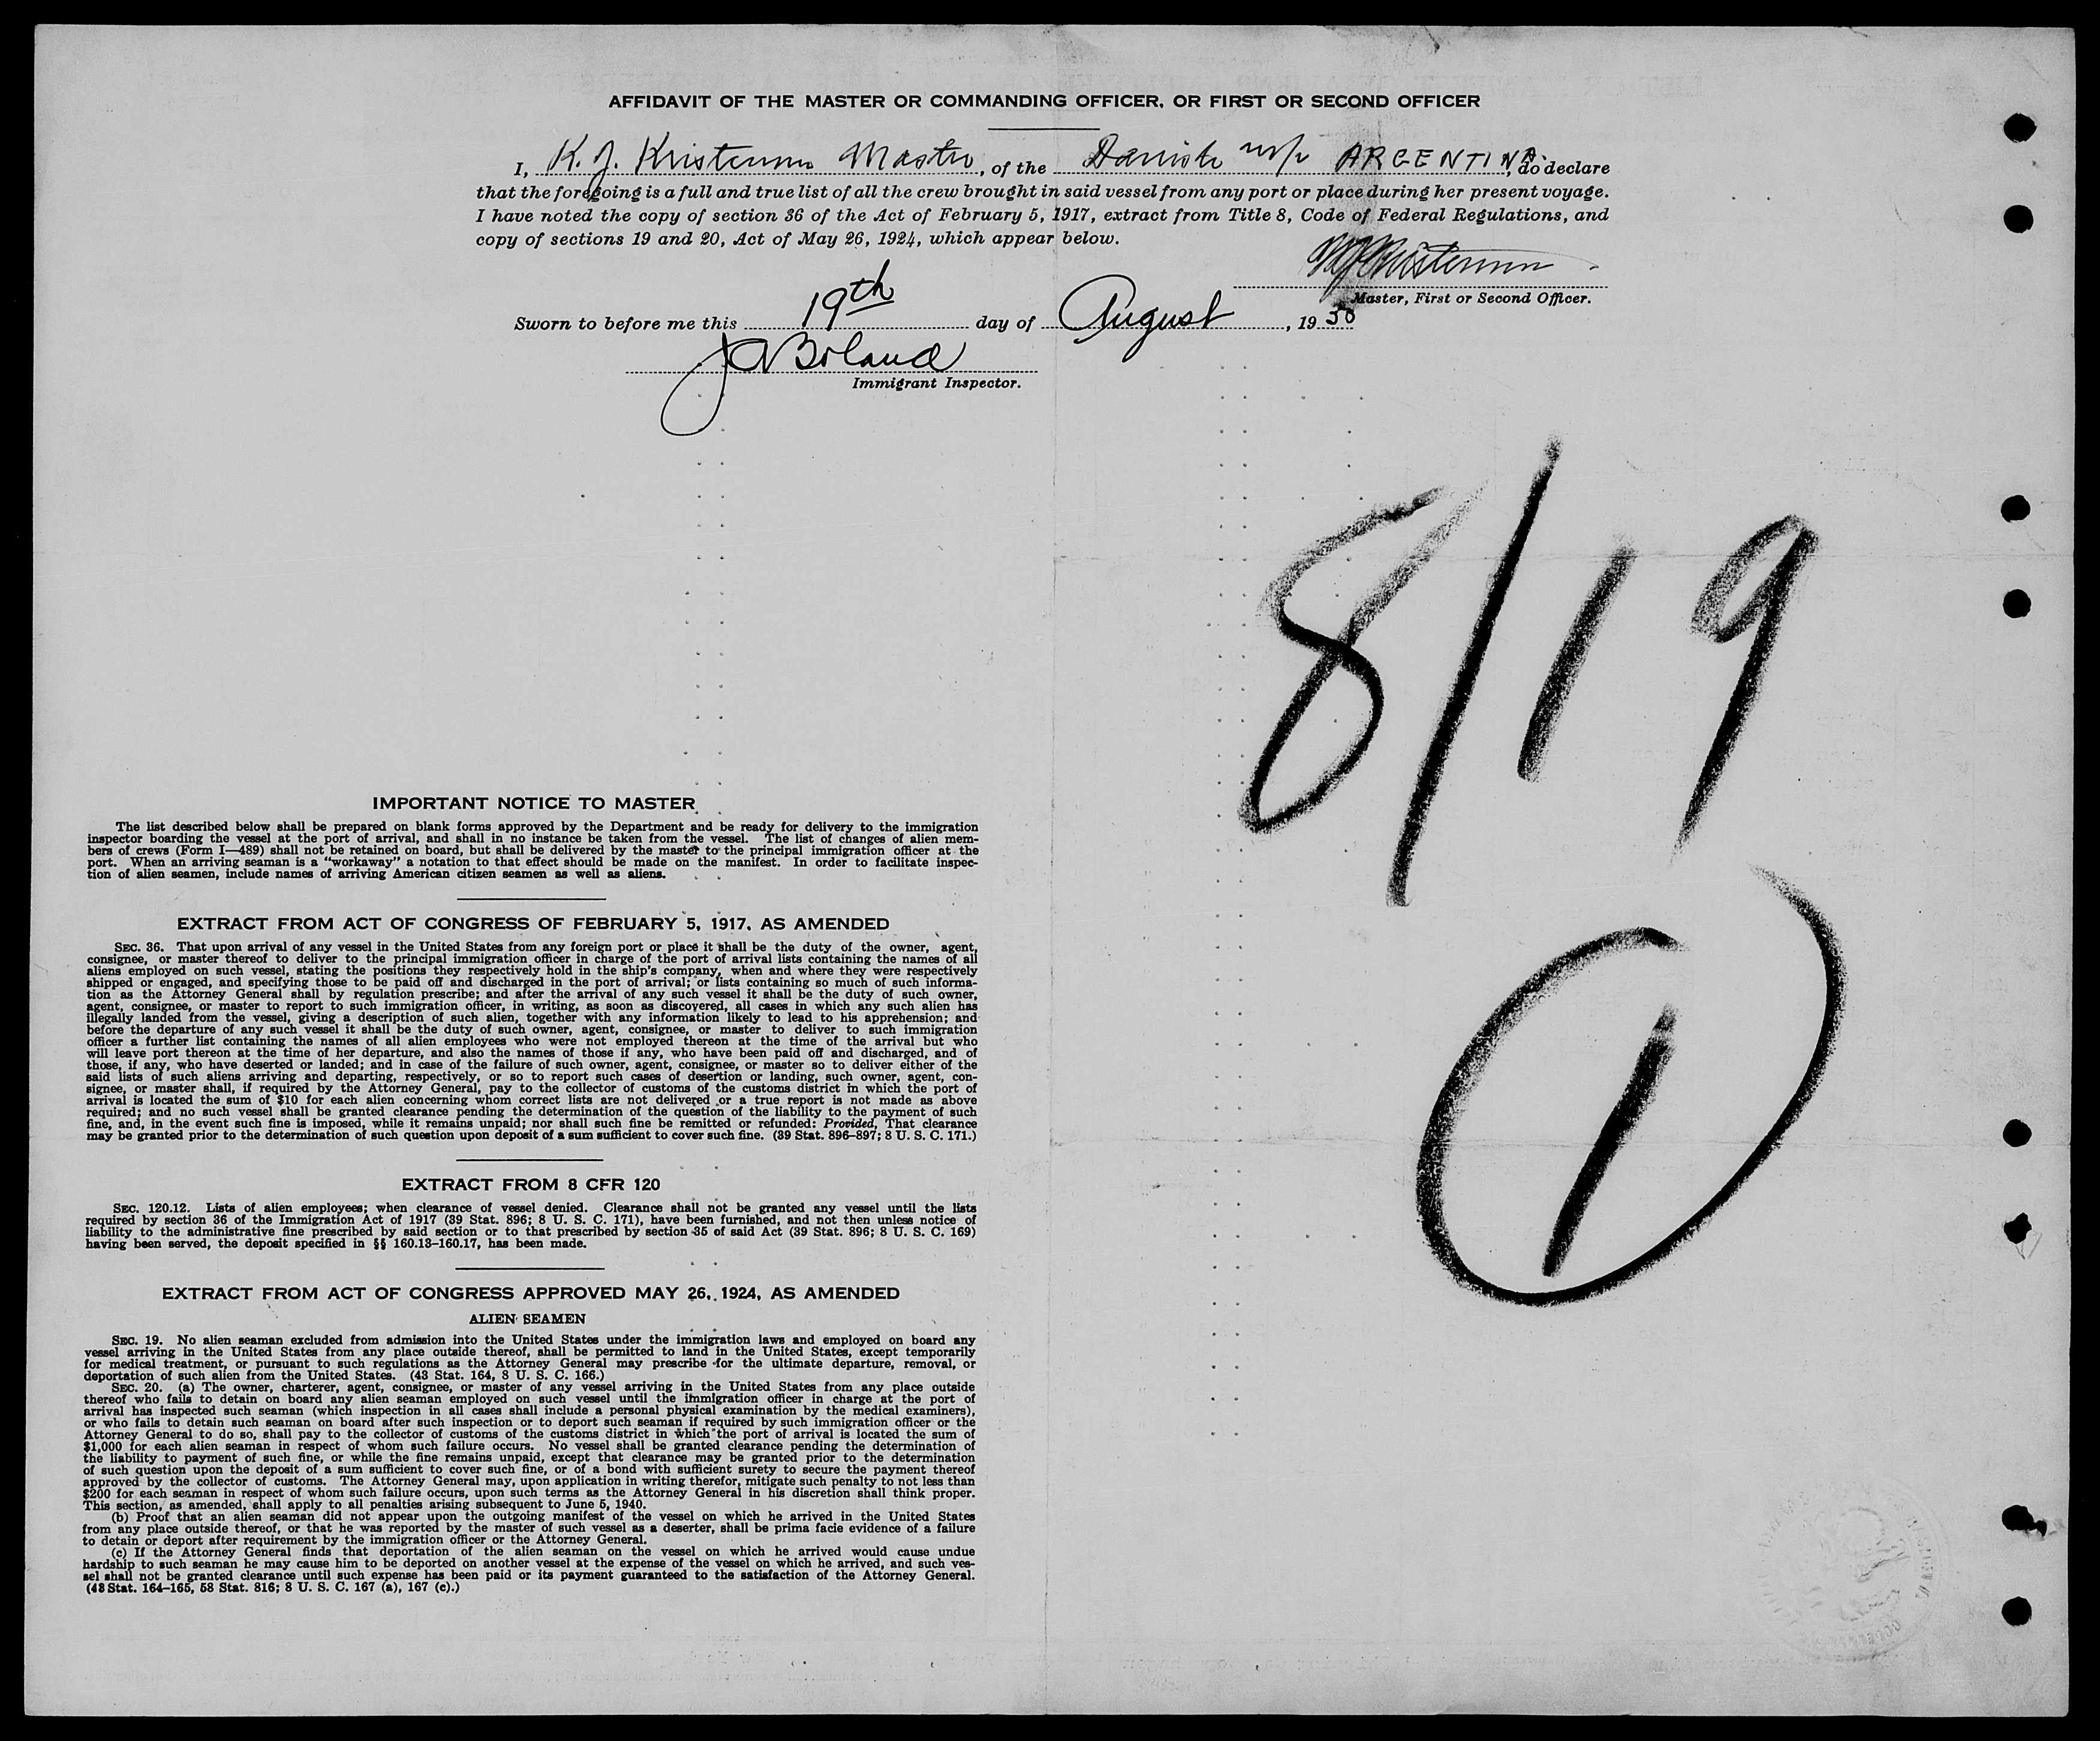 AFFIDAVIT OF THE MASTER OR COMMANDING OFFICER, OR FIRST OR SECOND OFFICER
I, K. J. Kristensen Master, of the Danish m/s ARGENTINA, do declare
that the foregoing is a full and true list of all the crew brought in said vessel from any port or place during her present voyage.
I have noted the copy of section 36 of the Act of February 5, 1917, extract from Title 8, Code of Federal Regulations, and
copy of sections 19 and 20, Act of May 26, 1924, which appear below.
Master, First or Second Officer.
Sworn to before me this 19th day of August, 1950
J A Boland
Immigrant Inspector.
8/19
1
IMPORTANT NOTICE TO MASTER
The list described below shall be prepared on blank forms approved by the Department and be ready for delivery to the immigration
inspector boarding the vessel at the port of arrival, and shall in no instance be taken from the vessel. The list of changes of alien mem-
bers of crews (Form I—489) shall not be retained on board, but shall be delivered by the master to the principal immigration officer at the
port. When an arriving seaman is a "workaway" a notation to that effect should be made on the manifest. In order to facilitate inspec-
tion of alien seamen, include names of arriving American citizen seamen as well as aliens.
EXTRACT FROM ACT OF CONGRESS OF FEBRUARY 5, 1917, AS AMENDED
SEC. 36. That upon arrival of any vessel in the United States from any foreign port or place it shall be the duty of the owner, agent,
consignee, or master thereof to deliver to the principal immigration officer in charge of the port of arrival lists containing the names of all
aliens employed on such vessel, stating the positions they respectively hold in the ship's company, when and where they were respectively
shipped or engaged, and specifying those to be paid off and discharged in the port of arrival; or lists containing so much of such informa-
tion as the Attorney General shall by regulation prescribe; and after the arrival of any such vessel it shall be the duty of such owner,
agent, consignee, or master to report to such immigration officer, in writing, as soon as discovered, all cases in which any such alien has
illegally landed from the vessel, giving a description of such alien, together with any information likely to lead to his apprehension; and
before the departure of any such vessel it shall be the duty of such owner, agent, consignee, or master to deliver to such immigration
officer a further list containing the names of all alien employees who were not employed thereon at the time of the arrival but who
will leave port thereon at the time of her departure, and also the names of those if any, who have been paid off and discharged, and of
those, if any, who have deserted or landed; and in case of the failure of such owner, agent, consignee, or master so to deliver either of the
said lists of such aliens arriving and departing, respectively, or so to report such cases of desertion or landing, such owner, agent, con-
signee, or master shall, if required by the Attorney General, pay to the collector of customs of the customs district in which the port of
arrival is located the sum of $10 for each alien concerning whom correct lists are not delivered or a true report is not made as above
required; and no such vessel shall be granted clearance pending the determination of the question of the liability to the payment of such
fine, and, in the event such fine is imposed, while it remains unpaid; nor shall such fine be remitted or refunded: Provided, That clearance
may be granted prior to the determination of such question upon deposit of a sum sufficient to cover such fine. (39 Stat. 896–897; 8 U. S. C. 171.)
EXTRACT FROM 8 CFR 120
SEC. 120.12. Lists of alien employees; when clearance of vessel denied. Clearance shall not be granted any vessel until the lists
required by section 36 of the Immigration Act of 1917 (39 Stat. 896; 8 U. S. C. 171), have been furnished, and not then unless notice of
liability to the administrative fine prescribed by said section or to that prescribed by section 35 of said Act (39 Stat. 896; 8 U. S. C. 169)
having been served, the deposit specified in §§ 160.13–160.17, has been made.
EXTRACT FROM ACT OF CONGRESS APPROVED MAY 26, 1924, AS AMENDED
ALIEN SEAMEN
SEC. 19. No alien seaman excluded from admission into the United States under the immigration laws and employed on board any
vessel arriving in the United States from any place outside thereof, shall be permitted to land in the United States, except temporarily
for medical treatment, or pursuant to such regulations as the Attorney General may prescribe for the ultimate departure, removal, or
deportation of such alien from the United States. (43 Stat. 164, 8 U. S. C. 166.)
SEC. 20. (a) The owner, charterer, agent, consignee, or master of any vessel arriving in the United States from any place outside
thereof who fails to detain on board any alien seaman employed on such vessel until the immigration officer in charge at the port of
arrival has inspected such seaman (which inspection in all cases shall include a personal physical examination by the medical examiners),
or who fails to detain such seaman on board after such inspection or to deport such seaman if required by such immigration officer or the
Attorney General to do so, shall pay to the collector of customs of the customs district in which the port of arrival is located the sum of
$1,000 for each alien seaman in respect of whom such failure occurs. No vessel shall be granted clearance pending the determination of
the liability to payment of such fine, or while the fine remains unpaid, except that clearance may be granted prior to the determination
of such question upon the deposit of a sum sufficient to cover such fine, or of a bond with sufficient surety to secure the payment thereof
approved by the collector of customs. The Attorney General may, upon application in writing therefor, mitigate such penalty to not less than
$200 for each seaman in respect of whom such failure occurs, upon such terms as the Attorney General in his discretion shall think proper.
This section, as amended, shall apply to all penalties arising subsequent to June 5, 1940.
(b) Proof that an alien seaman did not appear upon the outgoing manifest of the vessel on which he arrived in the United States
from any place outside thereof, or that he was reported by the master of such vessel as a deserter, shall be prima facie evidence of a failure
to detain or deport after requirement by the immigration officer or the Attorney General.
(c) If the Attorney General finds that deportation of the alien seaman on the vessel on which he arrived would cause undue
hardship to such seaman he may cause him to be deported on another vessel at the expense of the vessel on which he arrived, and such ves-
sel shall not be granted clearance until such expense has been paid or its payment guaranteed to the satisfaction of the Attorney General.
(43 Stat. 164–165, 58 Stat. 816; 8 U. S. C. 167 (a), 167 (c).)